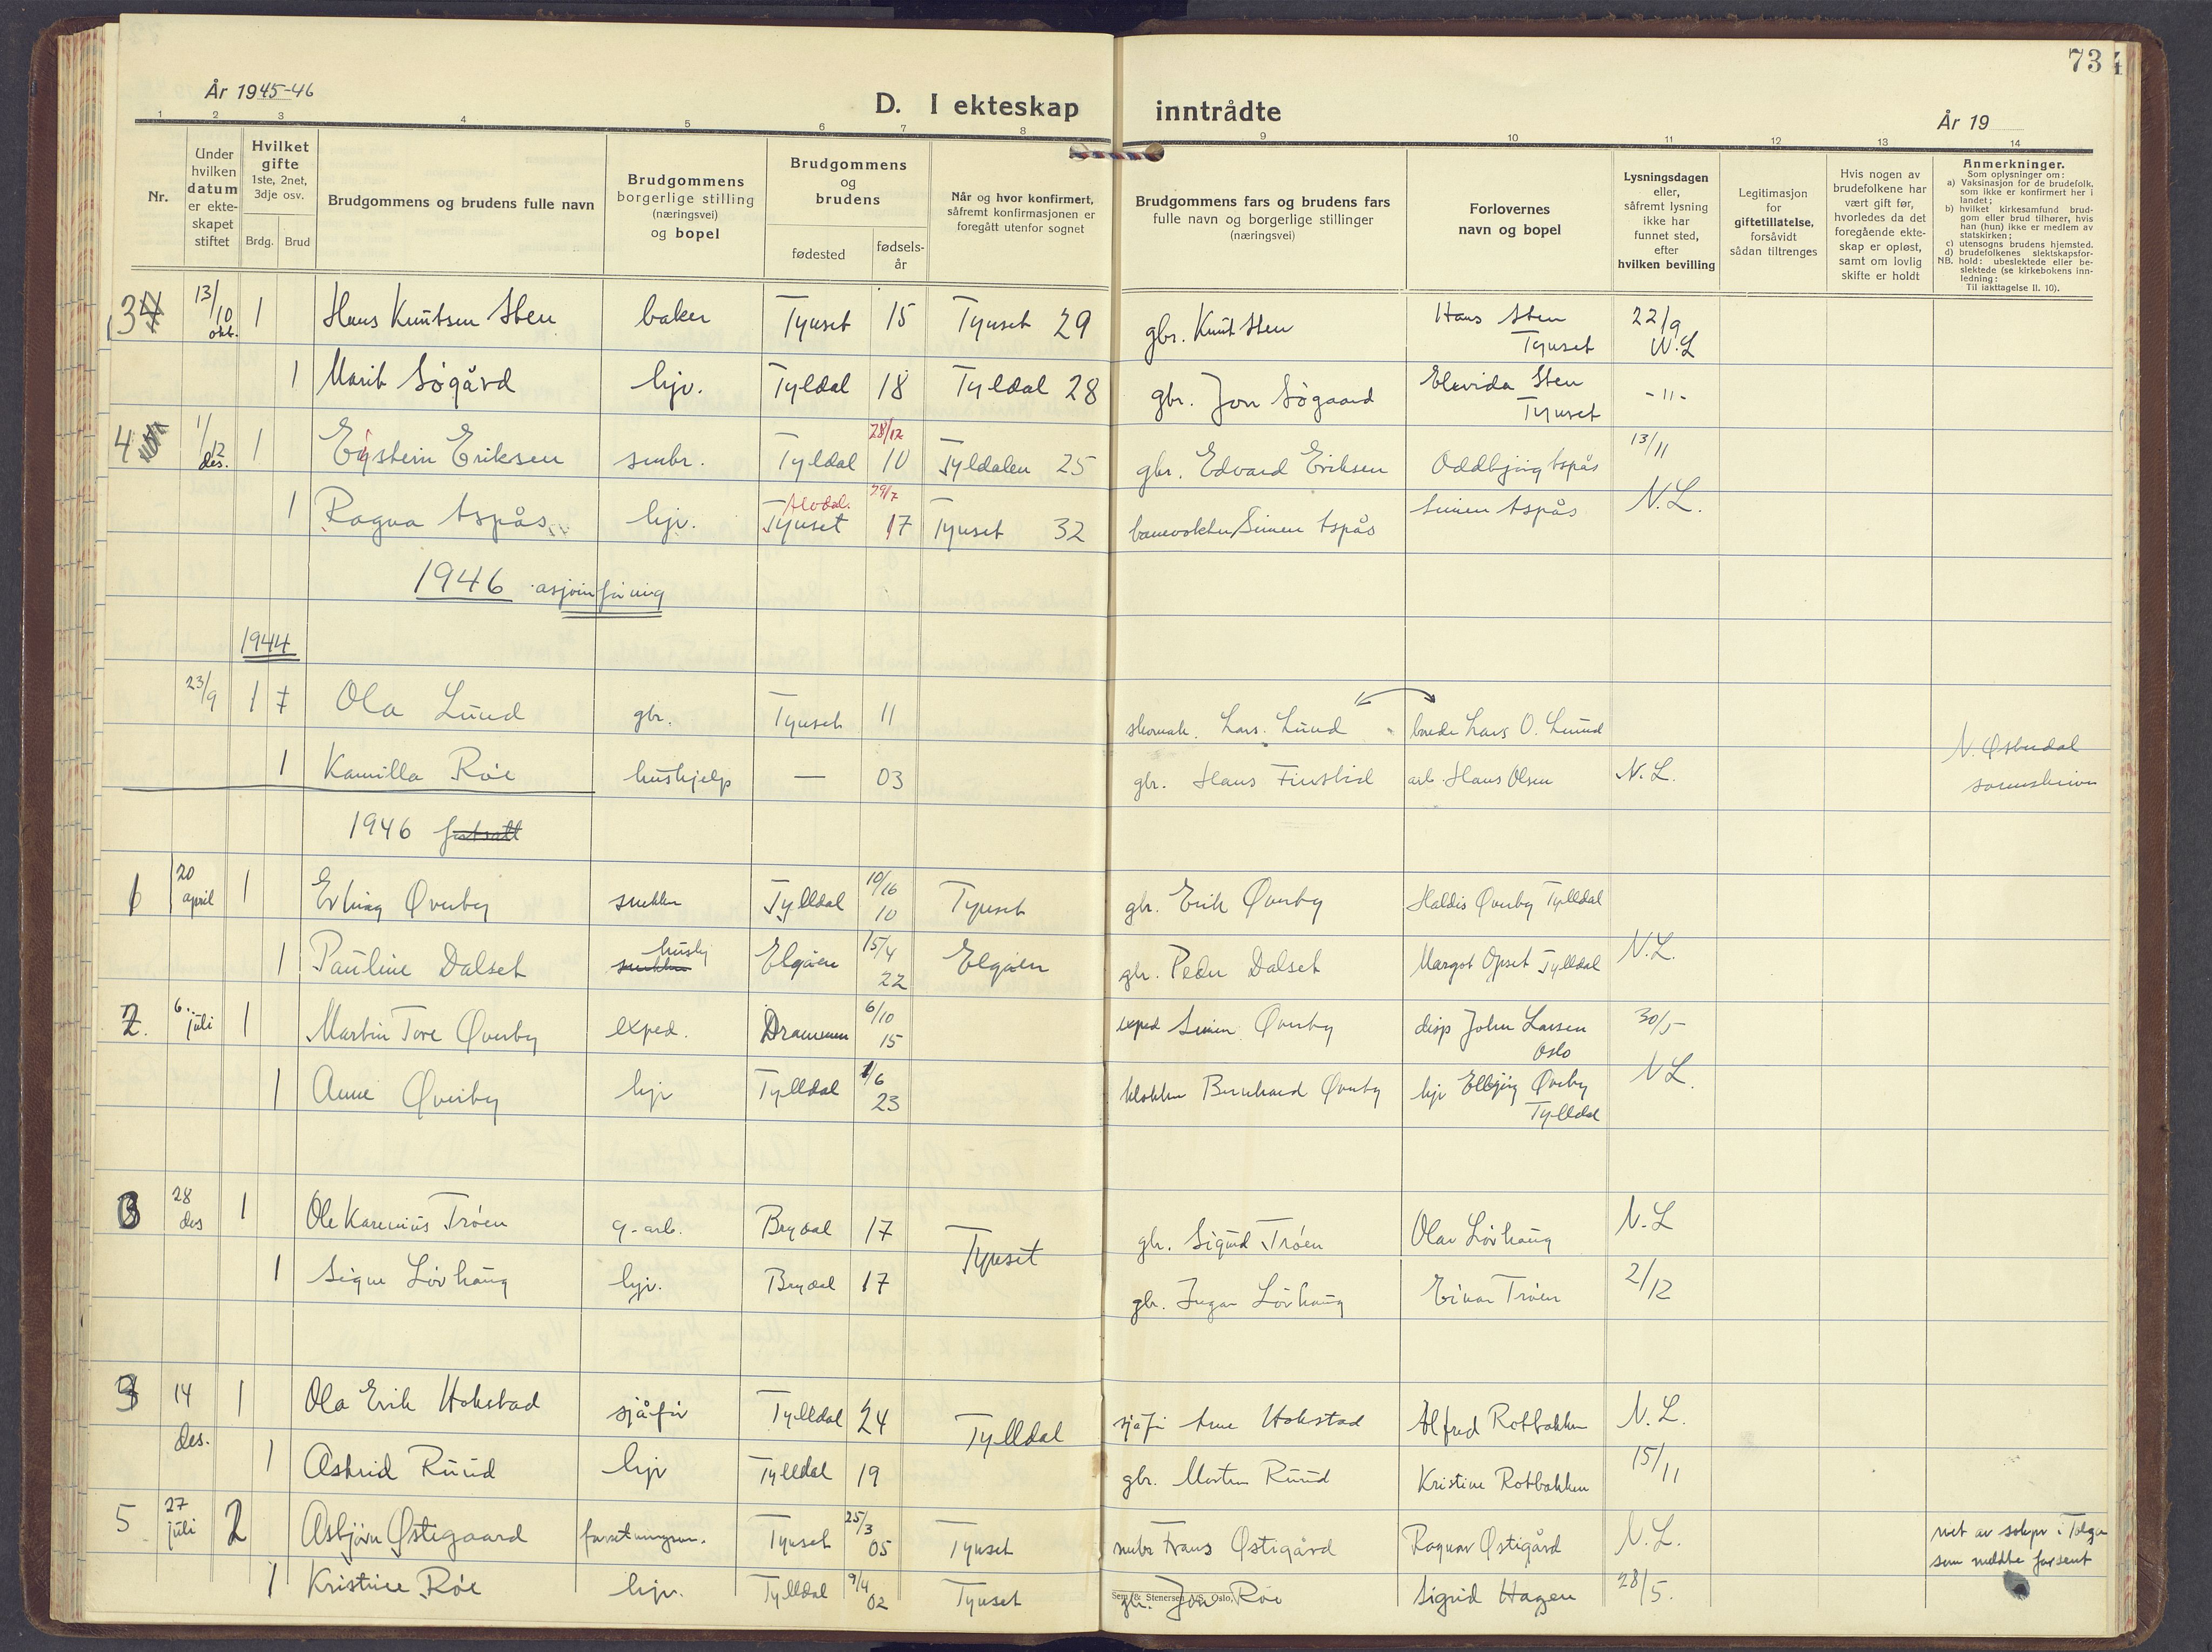 73
År 1945-46
D. I ekteskap inntrådte
År 19
1 2 3 4 5 6 7 8 9 10 11 12 13 14
Nr.
Under hvilken datum er ekte-skapet stiftet
Hvilket gifte 1ste, 2net, 3dje osv.
Brdg. Brud
Brudgommens og brudens fulle navn
Brudgommens borgerlige stilling (næringsvei) og bopel
Brudgommens og brudens
fødested
fødsels-år
Når og hvor konfirmert, såfremt konfirmasjonen er foregått utenfor sognet
Brudgommens fars og brudens fars fulle navn og borgerlige stillinger (næringsvei)
Forlovernes navn og bopel
Lysningsdagen eller, såfremt lysning ikke har funnet sted, efter hvilken bevilling
Legitimasjon for giftetillatelse, forsåvidt sådan tiltrenges
Hvis nogen av brudefolkene har vært gift før, hvorledes da det foregående ekte-skap er opløst, samt om lovlig skifte er holdt
Anmerkninger.
Som oplysninger om:
a) Vaksinasjon for de brudefolk. som ikke er konfirmert her i landet;
b) hvilket kirkesamfund brud-gom eller brud tilhører, hvis han (hun) ikke er medlem av statskirken;
c) utensogns brudens hjemsted.
d) brudefolkenes slektskapsfor-hold: ubeslektede eller be-slektede (se kirkebokens inn-ledning:
NB. Til iakttagelse II. 10).
3 13/10 okt. 1 Hans Knutsen Sten baker Tynset 15 Tynset 29 gbr. Knut Sten Hans Sten Tynset 22/9 N.L
1 Marit Søgård hjv. Tyldal 18 Tyldal 28 gbr. Jon Søgaard Elevida Sten Tynset -"-
4 1/12 des. 1 Eystein Eriksen smbr. Tyldal 28/12 10 Tyldalen 25 gbr. Edvard Eriksen Oddbjörg Aspås 13/11
1 Ragna Aspås hjv. Alvdal. Tynset 29/7 17 Tynset 32 banevokter Simen Aspås Simen Aspås N.L.
1946
1944
23/9 1 Ola Lund gbr. Tynset 11 skomak. Lars Lund Lars O. Lund
1 Kamilla Røe hushjelp — 03 gbr. Hans Finstad arb. Hans Olsen N.L. N. Østerdal sorenskriver
1946 fortsatt
1 20 april 1 Erling Øverby snekker Tylldal 10/16 10 Tynset gbr. Erik Øverby Haldis Øverby Tylldal
1 Pauline Dalset snekker hushj Elgåen 15/4 22 Elgåen gbr. Peder Dalset Margot Opset Tylldal N.L.
2. 6. juli 1 Martin Tore Øverby exped. Drammen 6/10 15 exped Simen Øverby disp John Larsen Oslo 30/5
1 Anne Øverby hjv Tylldal 1/6 23 klokker Bernhard Øverby hjv Ellbjørg Øverby Tylldal N L.
3 28 des 1 Ole Karenius Trøen g-arb. Brydal 17 Tynset gbr. Sigurd Trøen Olav Løvhaug N.L
1 Signe Løvhaug hjv. Brydal 17 gbr. Ingar Løvhaug Einar Trøen 2/12
14 des. 1 Ola Erik Hokstad sjåfør Tylldal 24 Tylldal sjåfør Arne Hokstad Alfred Rotbakken N.L.
1 Astrid Ruud hjv Tylldal 19 gbr. Morten Ruud Kristine Rotbakken 15/11
5 27 juli 2 Asbjørn Østigaard forretningsm. Tynset 25/3 05 Tynset smbr Frans Østigård Ragnar Østigård N.L. viet av sokpr i Tolga som meldte for sent
1 Kristine Røe hjv. Tylldal 9/4 02 Tynset gbr. Jon Røe Sigrid Hagen 28/5.
Sem & Stenersen A/S, Oslo,